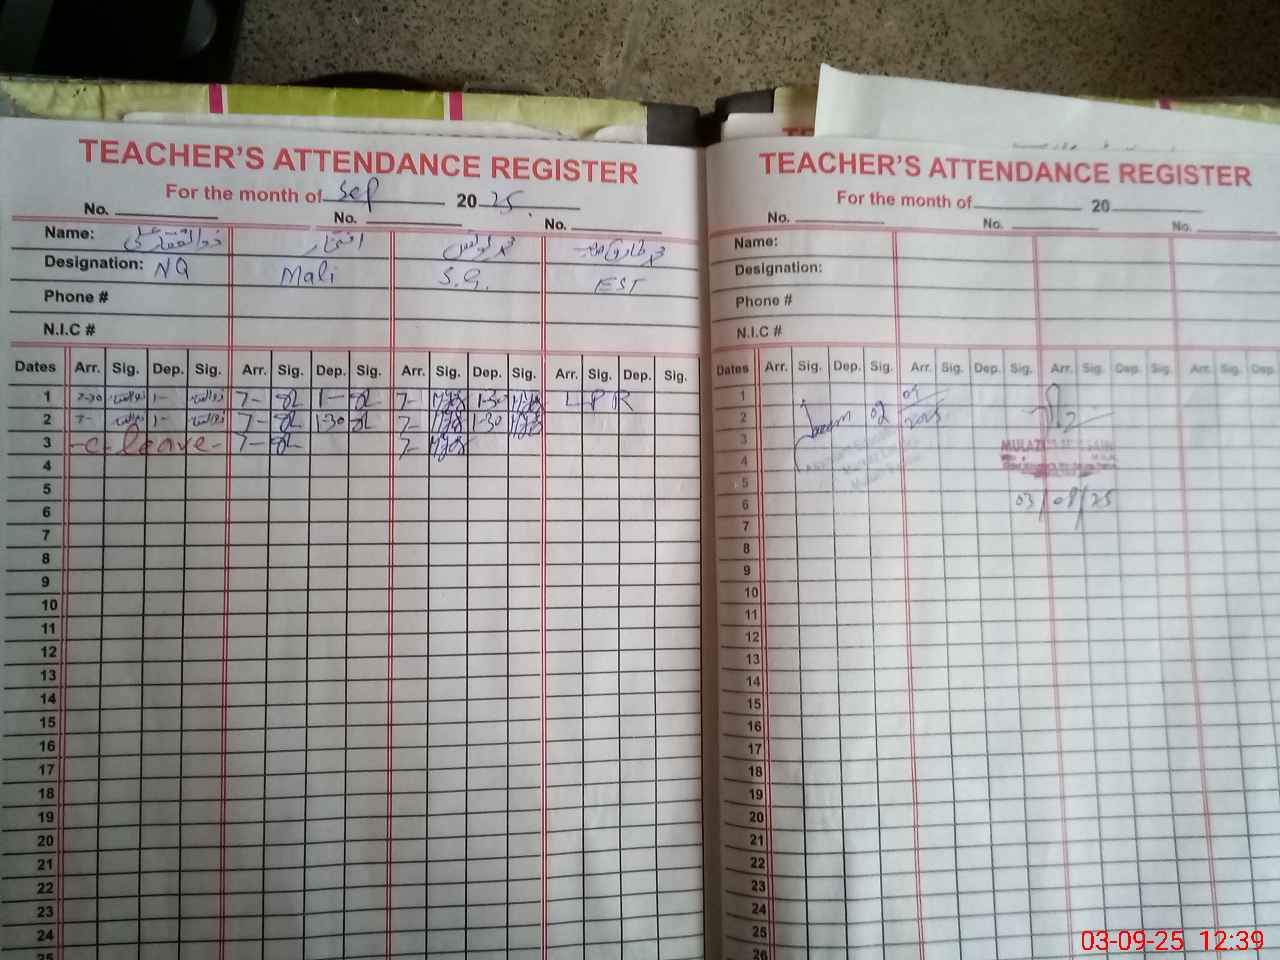 TEACHER'S ATTENDANCE REGISTER
For the month of Sep 2025.
No. No. No.
Name: ذوالفقار علی افتخار محمد یونس محمد طارق
Designation: NQ Mali S.G. EST
Phone #
N.I.C #
Dates Arr. Sig. Dep. Sig. Arr. Sig. Dep. Sig. Arr. Sig. Dep. Sig. Arr. Sig. Dep. Sig.
1 7-30 1- 7- 1- 7- 1-30 LPR
2 7- 1- 7- 1-30 7- 1-30
3 -c-leave- 7- 7-
4
5
6
7
8
9
10
11
12
13
14
15
16
17
18
19
20
21
22
23
24
25
TEACHER'S ATTENDANCE REGISTER
For the month of 20
No. No. No.
Name:
Designation:
Phone #
N.I.C #
Dates Arr. Sig. Dep. Sig. Arr. Sig. Dep. Sig. Arr. Sig. Dep. Sig. Arr. Sig. Dep.
1 09
2 02 2025
3
4
5
6 03/09/25
7
8
9
10
11
12
13
14
15
16
17
18
19
20
21
22
23
24
25
26
03-09-25 12:39